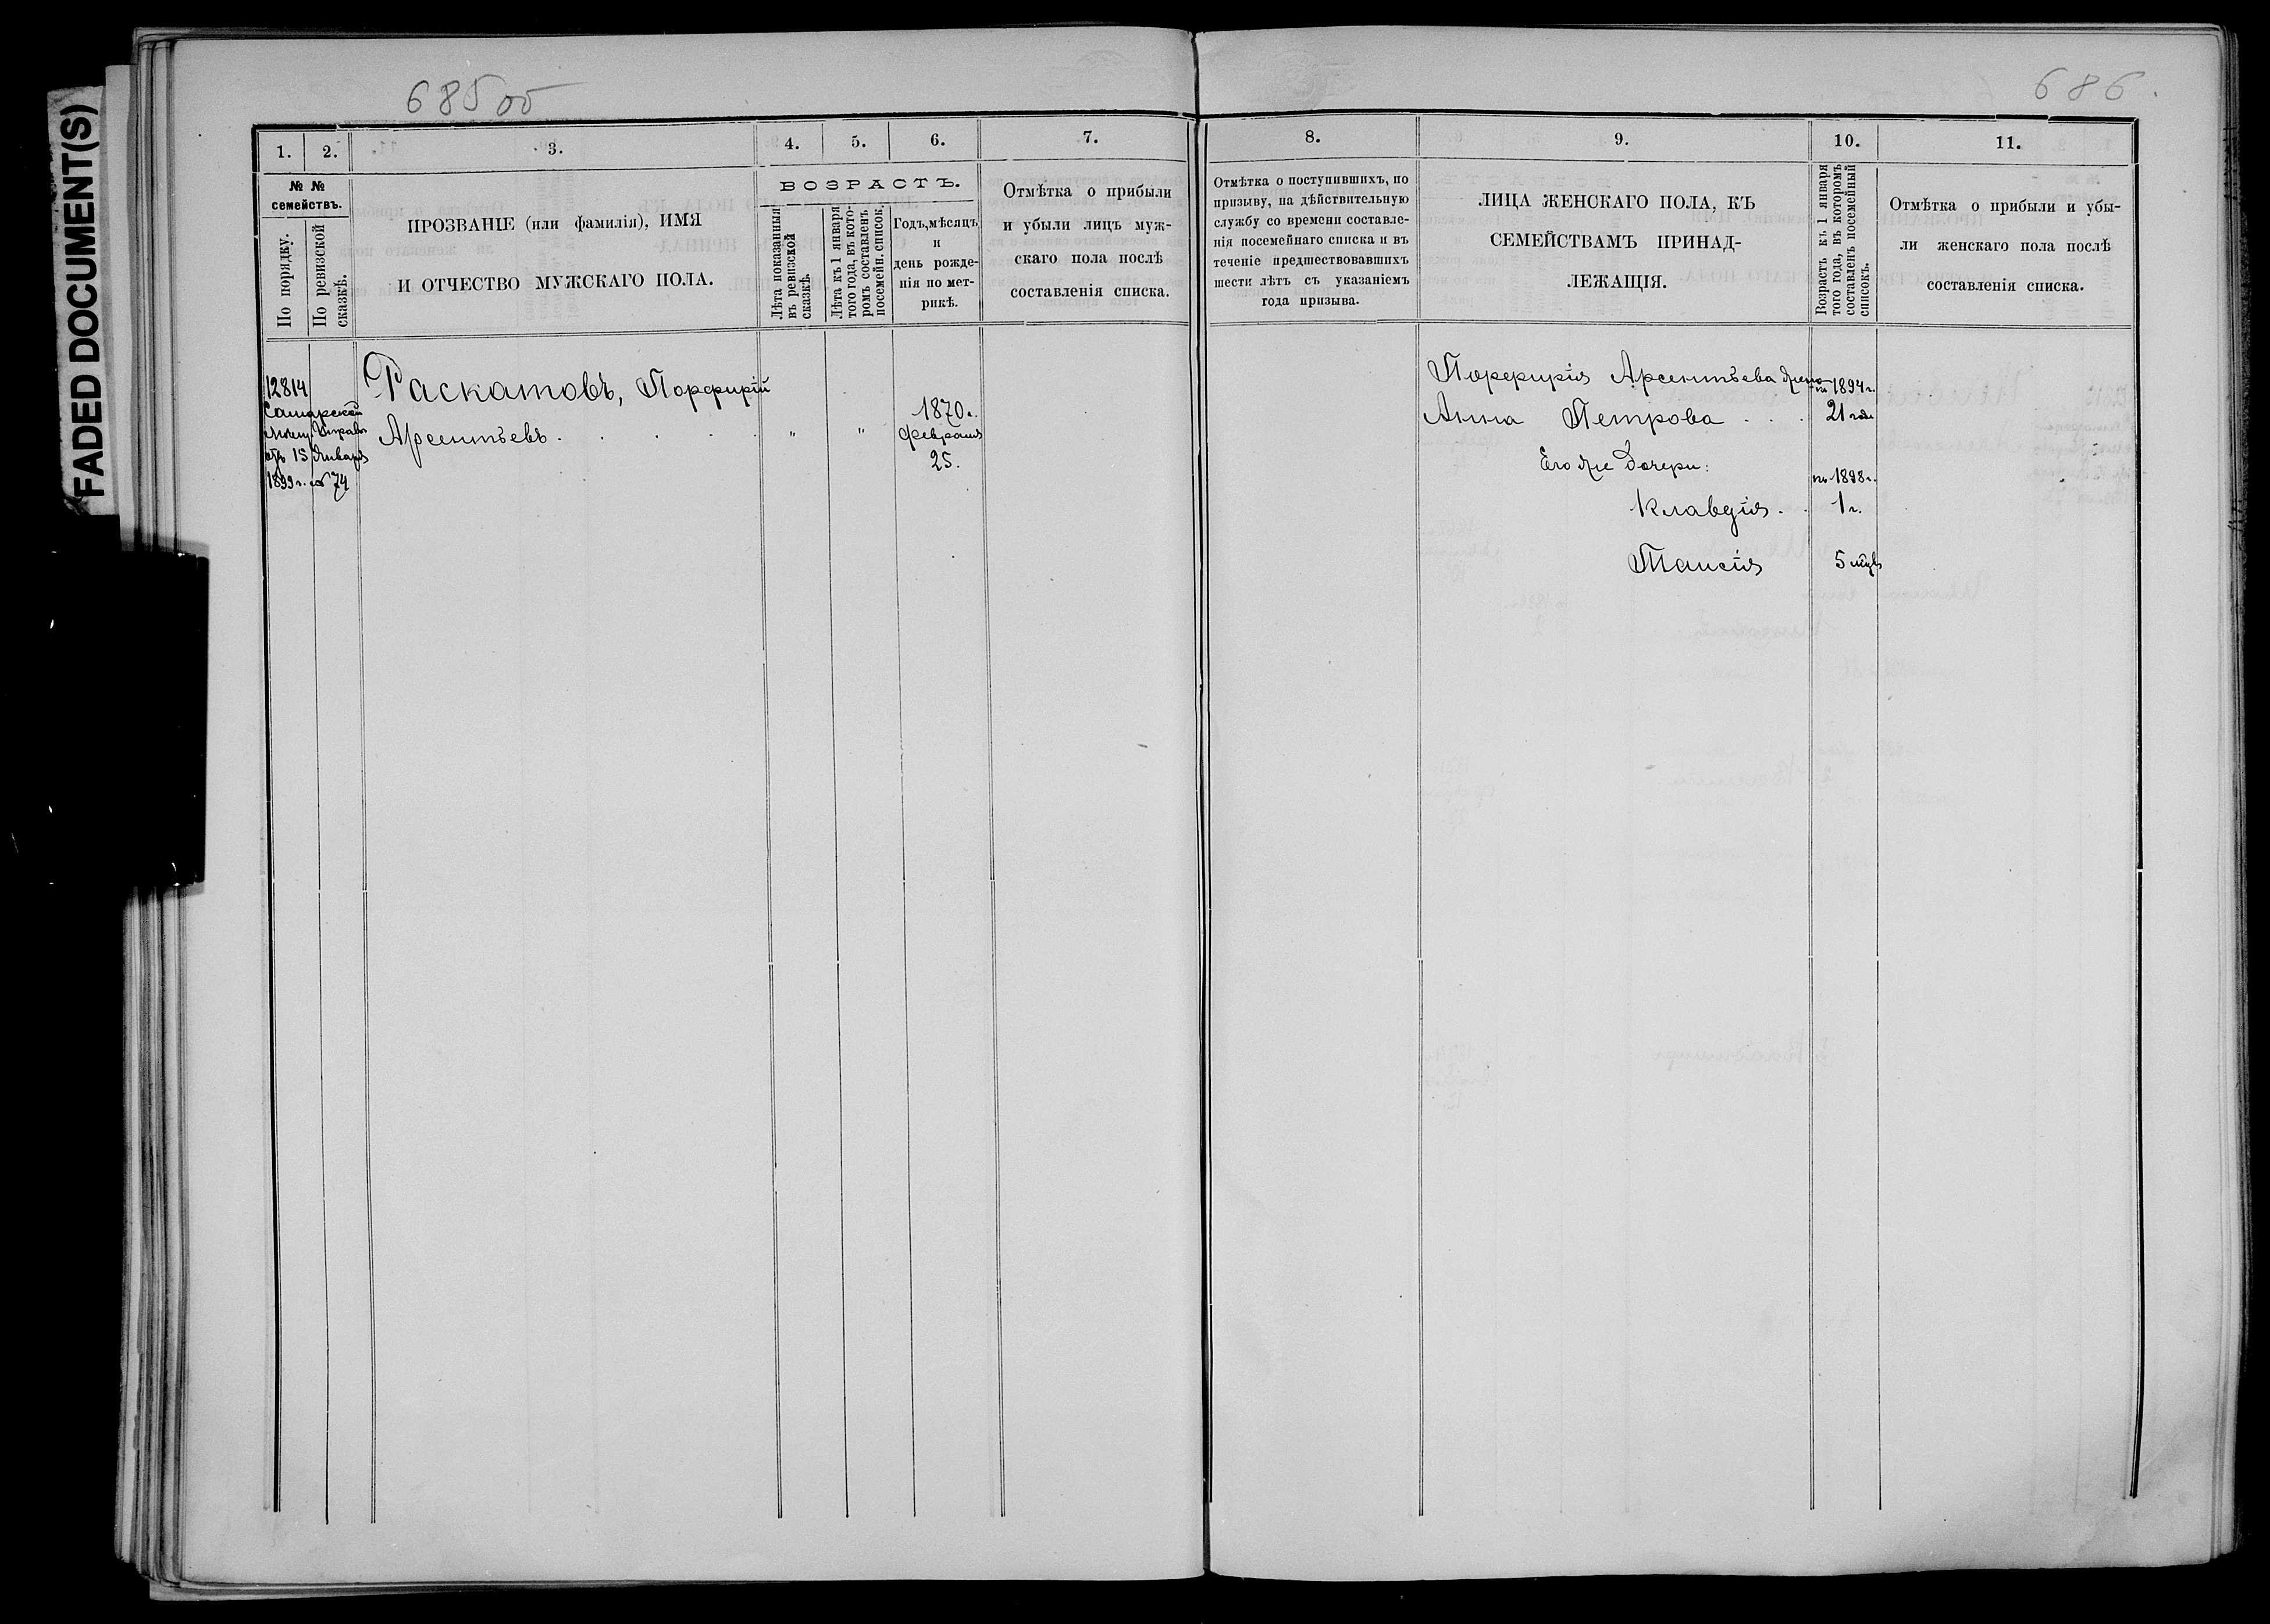 FADED DOCUMENT(S)
685 об
686.
1. 2. 3. 4. 5. 6. 7.
№ №
семействъ.
По порядку.
По ревизской
сказкѣ.
ПРОЗВАНІЕ (или фамилія), ИМЯ
И ОТЧЕСТВО МУЖСКАГО ПОЛА.
ВОЗРАСТЪ.
Лѣта показанныя
въ ревизской
сказкѣ.
Лѣта къ 1 января
того года, въ кото-
ромъ составленъ
посемейн. списокъ.
Годъ, мѣсяцъ
и
день рожде-
нія по мет-
рикѣ.
Отмѣтка о прибыли
и убыли лицъ муж-
скаго пола послѣ
составленія списка.
12814
Самарской
Мѣщ. Управы
отъ 15 Января
1899 г. № 74
Раскатовъ, Порфирій
Арсентьевъ . . . . " "
1870 г.
февраля
25.
8. 9. 10. 11.
Отмѣтка о поступившихъ, по
призыву, на дѣйствительную
службу со времени составле-
нія посемейнаго списка и въ
теченіе предшествовавшихъ
шести лѣтъ съ указаніемъ
года призыва.
ЛИЦА ЖЕНСКАГО ПОЛА, КЪ
СЕМЕЙСТВАМЪ ПРИНАД-
ЛЕЖАЩІЯ.
Возрастъ къ 1 января
того года, въ которомъ
составленъ посемейный
списокъ.
Отмѣтка о прибыли и убы-
ли женскаго пола послѣ
составленія списка.
Порфирія Арсентьева жена 1894 г.
Анна Петрова . . . 21 года
Его же дочери:
1898 г.
Клавдія . . 1 г.
Таисія 5 мѣс.